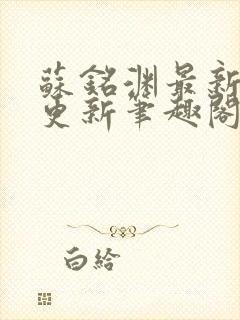 蘇銘淵最新
更新筆趣閣
白給